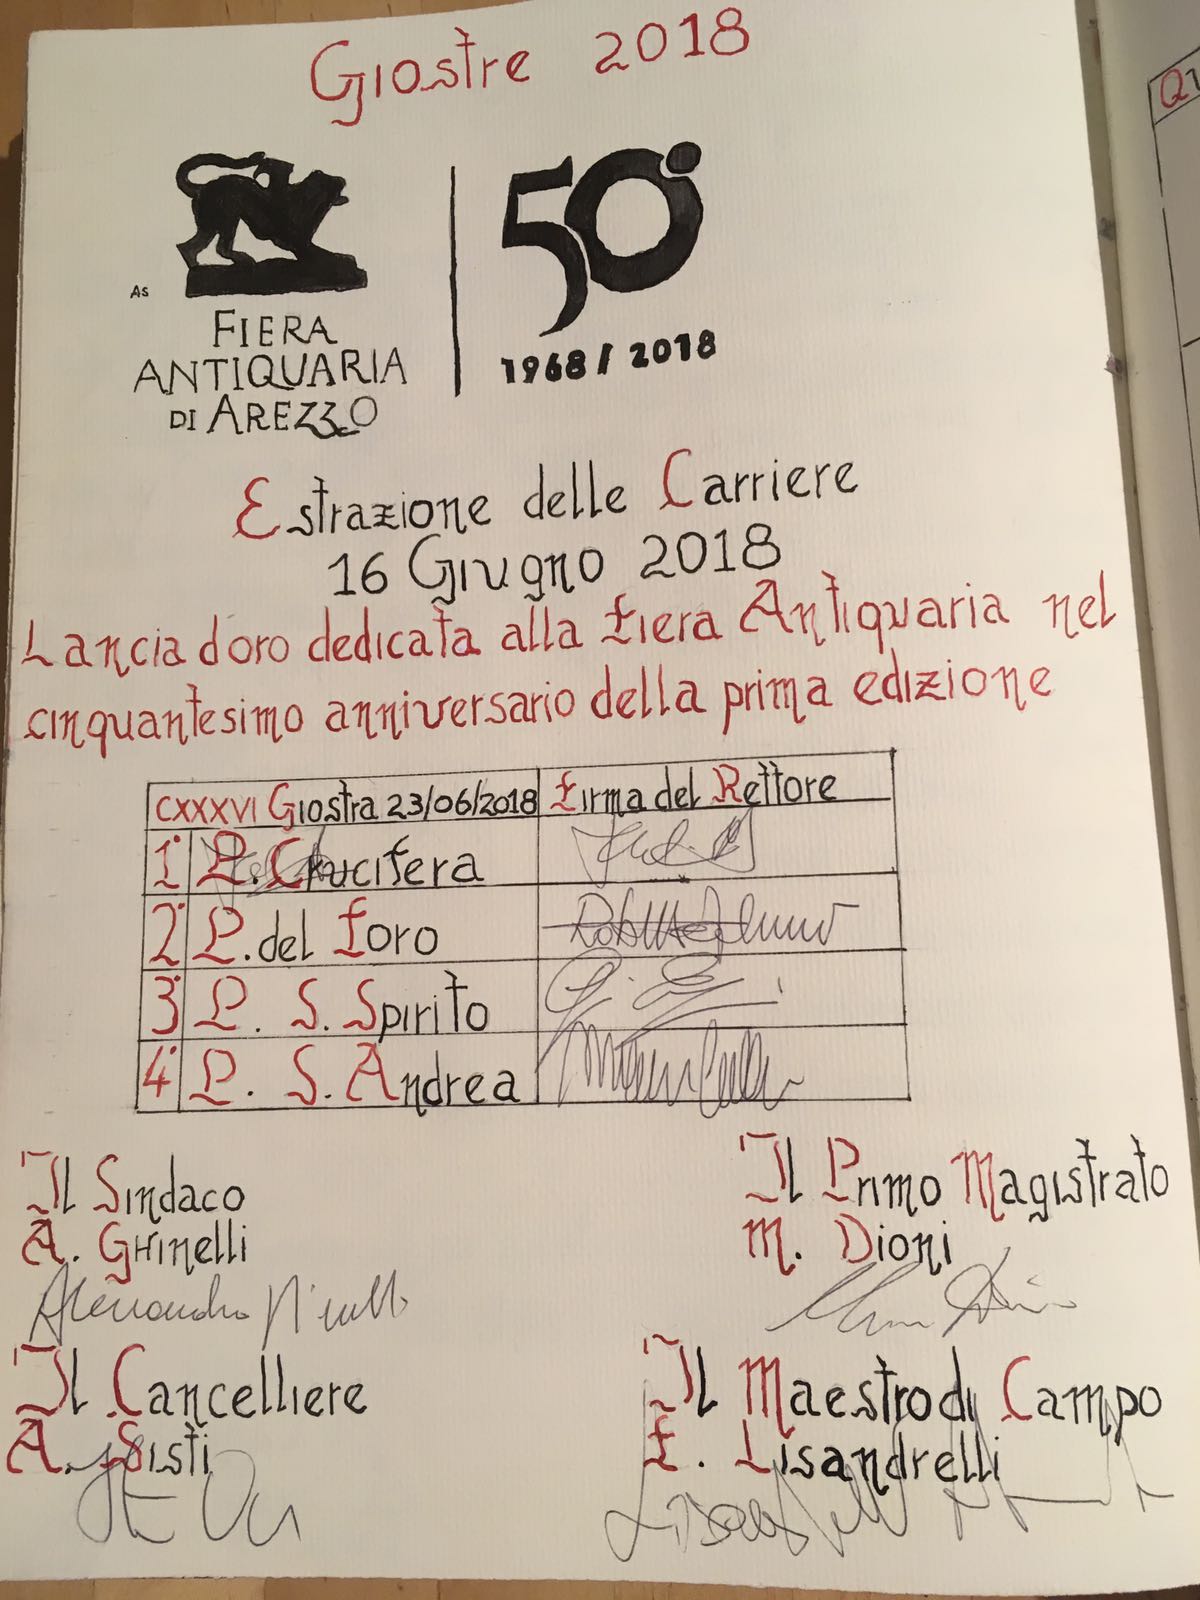 Giostre 2018
As
FIERA
ANTIQUARIA
DI AREZZO
50°
1968/2018
Estrazione delle Carriere
16 Giugno 2018
Lancia d'oro dedicata alla Fiera Antiquaria nel
cinquantesimo anniversario della prima edizione
CXXXVI Giostra 23/06/2018 Firma del Rettore
1° P. Crucifera
2° P. del Foro
3° P. S. Spirito
4° P. S. Andrea
Il Sindaco
A. Ghinelli
Il Primo Magistrato
M. Dioni
Il Cancelliere
A. Sisti
Il Maestro di Campo
F. Lisandrelli